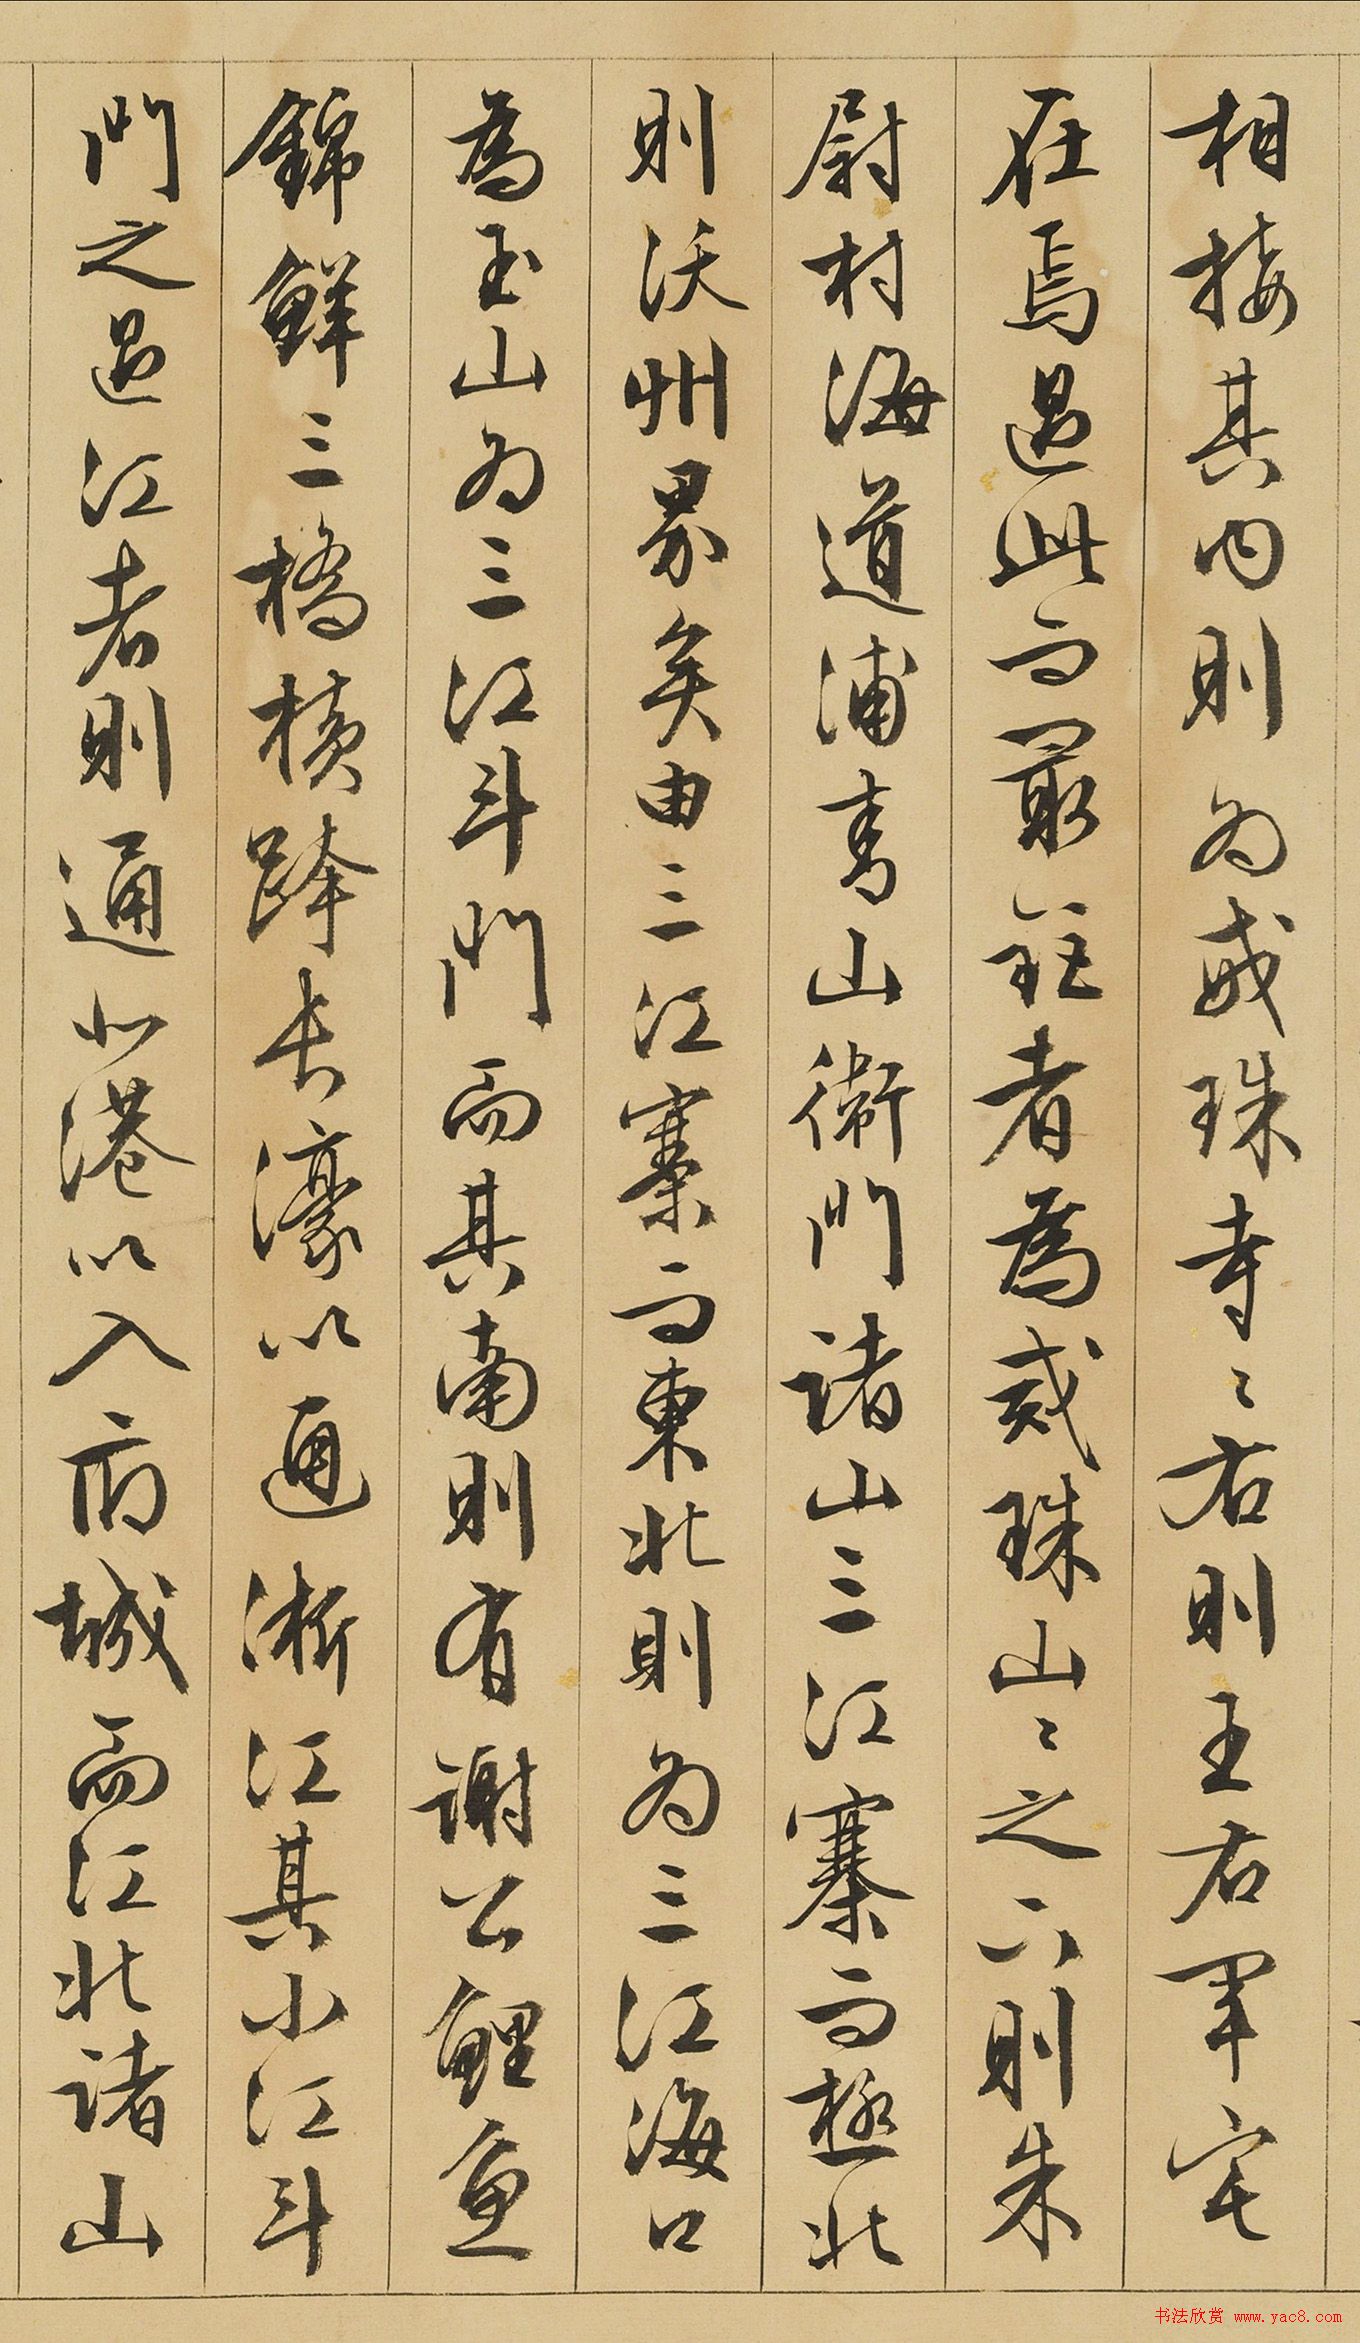 相接其內則為戒珠寺〻右則王右軍宅
在焉過此而最近者為戒珠山〻之下則朱
尉村海道浦青山衛門諸山三江寨而極北
則沃州界矣由三江寨而東北則為三江海口
為玉山為三江斗門而其南則有謝公鯉魚
錦鮮三橋橫跨長濠以通浙江其小江斗
門之過江者則通小港以入府城而江北諸山
书法欣赏 www.yac8.com